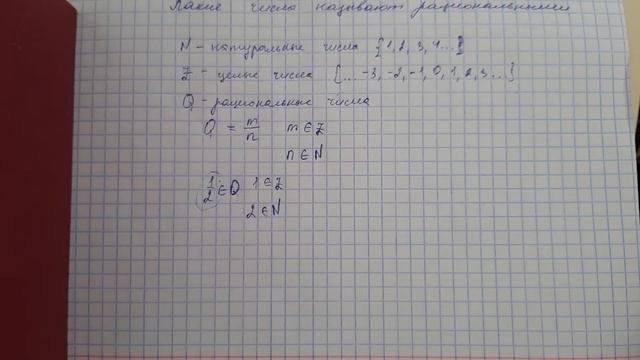 Какие числа называют рациональными
N - натуральные числа {1, 2, 3, 4...}
Z - целые числа {... -3, -2, -1, 0, 1, 2, 3 ...}
Q - рациональные числа
Q = m/n m ∈ Z
n ∈ N
1/2 ∈ Q 1 ∈ Z
2 ∈ N